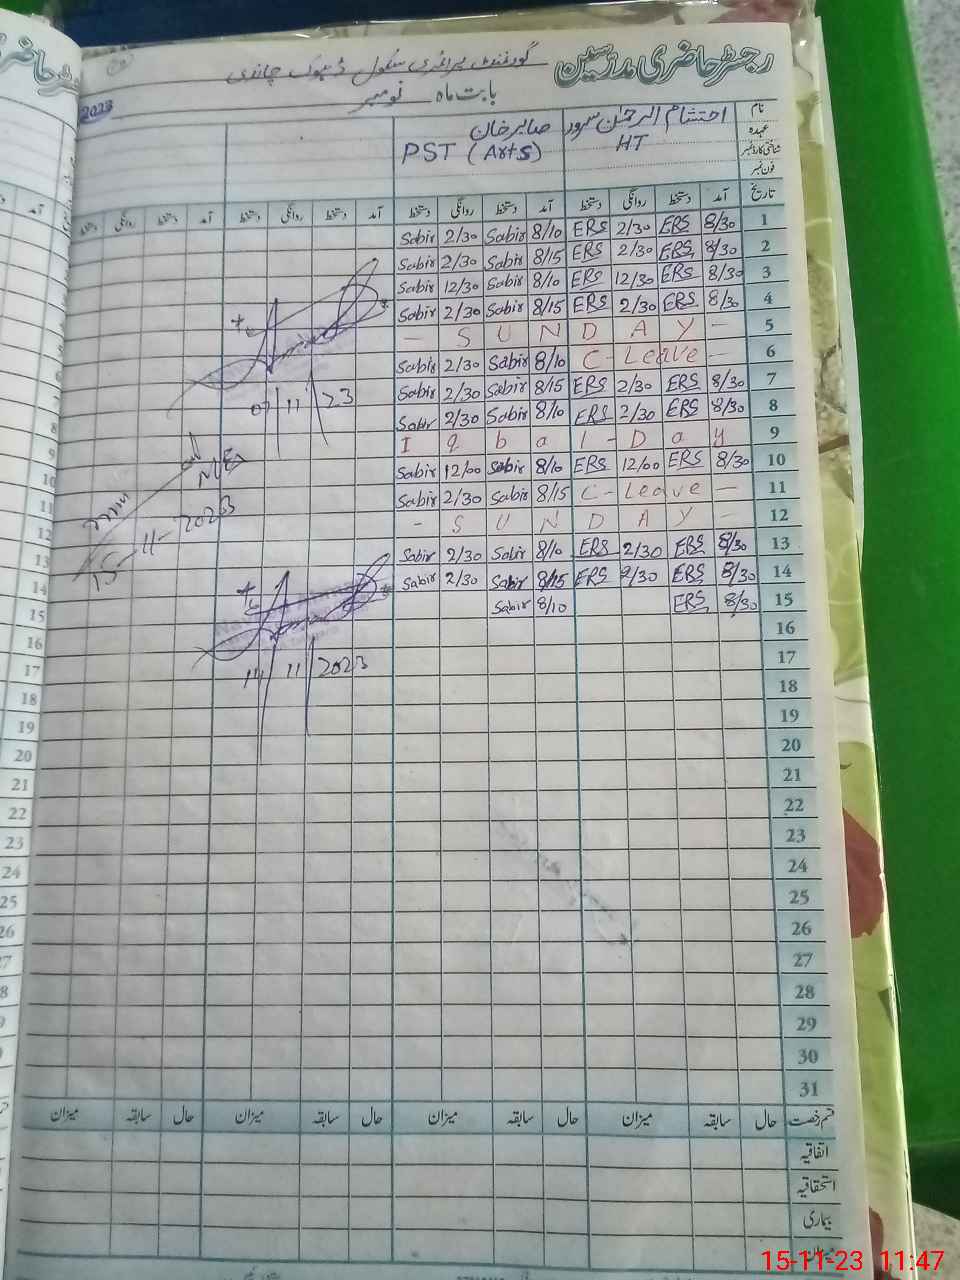 رجسٹر حاضری مدرسین
گورنمنٹ پرائمری سکول ڈھوک چاندی
بابت ماہ نومبر 2023
نام احتشام الرحمٰن سرور صابر خان
عہدہ HT PST (Arts)
شناختی کارڈ نمبر
فون نمبر
تاریخ آمد دستخط روانگی دستخط آمد دستخط روانگی دستخط آمد دستخط روانگی دستخط آمد دستخط روانگی دستخط
Sabir 2/30 Sabir 8/10 ERS 2/30 ERS 8/30 1
Sabir 2/30 Sabir 8/15 ERS 2/30 ERS 8/30 2
Sabir 12/30 Sabir 8/10 ERS 12/30 ERS 8/30 3
Sabir 2/30 Sabir 8/15 ERS 2/30 ERS 8/30 4
— SUNDAY — 5
Sabir 2/30 Sabir 8/10 C-Leave — 6
Sabir 2/30 Sabir 8/15 ERS 2/30 ERS 8/30 7
Sabir 2/30 Sabir 8/10 ERS 2/30 ERS 8/30 8
Iqbal-Day 9
Sabir 12/00 Sabir 8/10 ERS 12/00 ERS 8/30 10
Sabir 2/30 Sabir 8/15 C-Leave — 11
- SUNDAY - 12
Sabir 2/30 Sabir 8/10 ERS 2/30 ERS 8/30 13
Sabir 2/30 Sabir 8/15 ERS 2/30 ERS 8/30 14
Sabir 8/10 ERS 8/30 15
16
17
18
19
20
21
22
23
24
25
26
27
28
29
30
31
07/11/23
15-11-2023
14/11/2023
قسم رخصت حال سابقہ میزان حال سابقہ میزان حال سابقہ میزان حال سابقہ میزان
اتفاقیہ
استحقاقیہ
بیماری
میزان
15-11-23 11:47